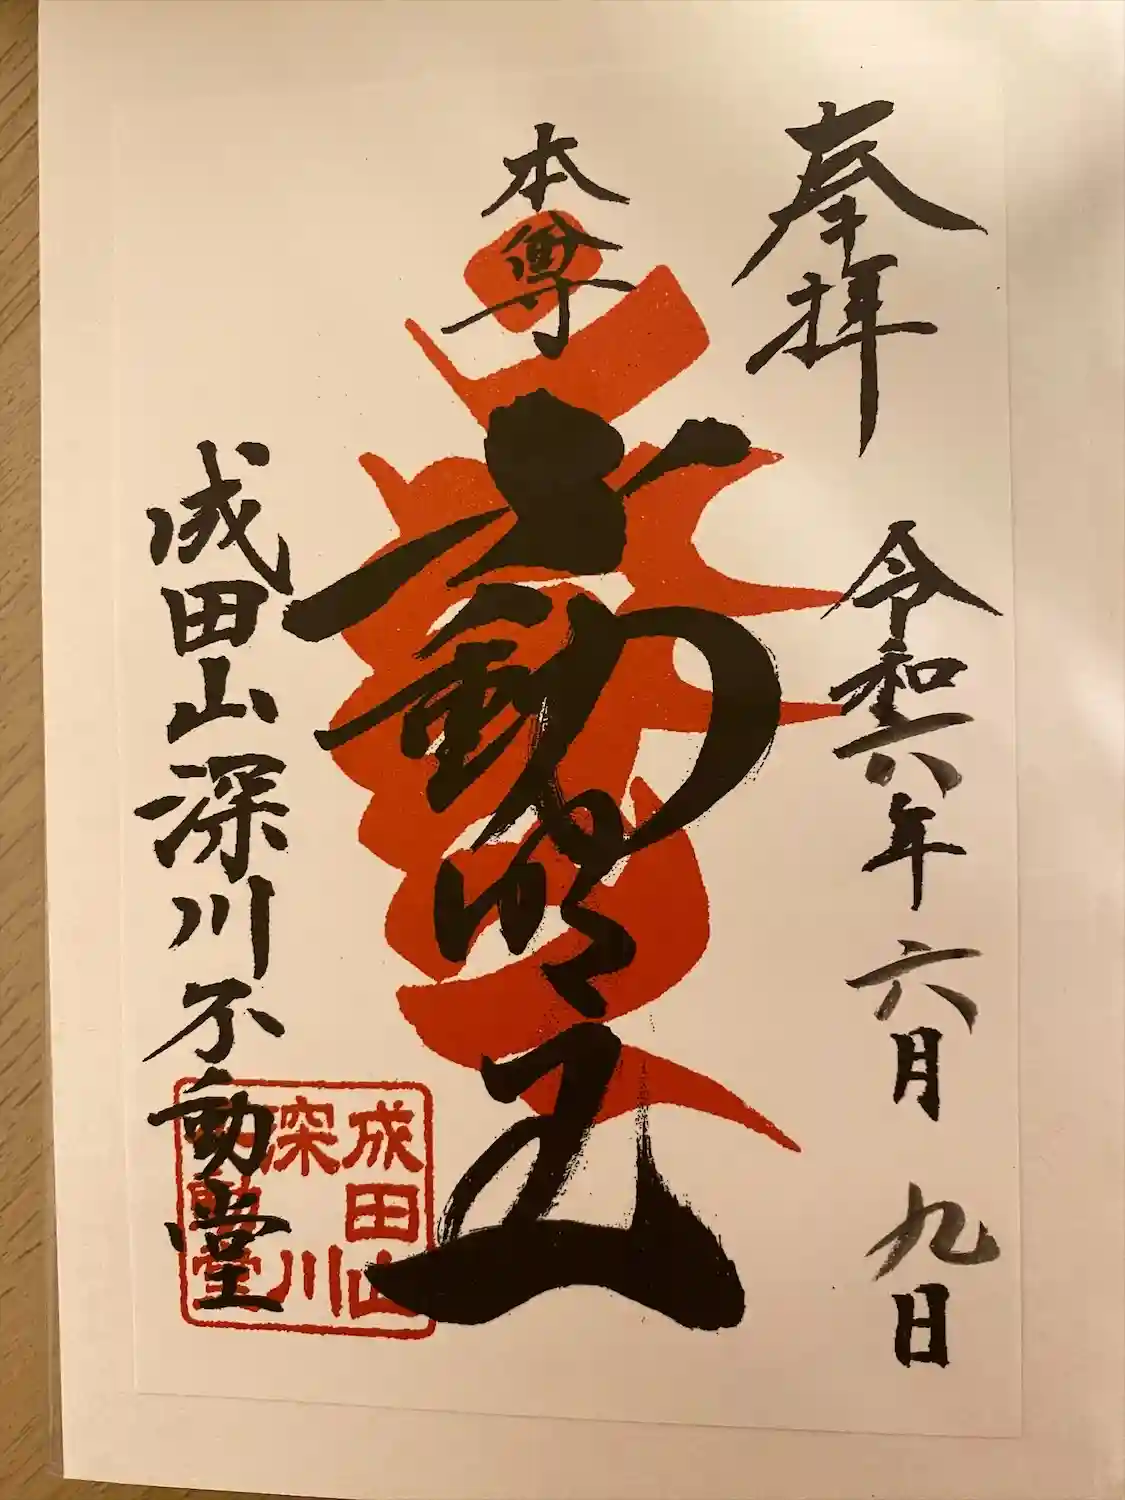 奉拝
令和六年 六月 九日
本尊
不動明王
成田山深川不動堂
成田山
深川
不動堂